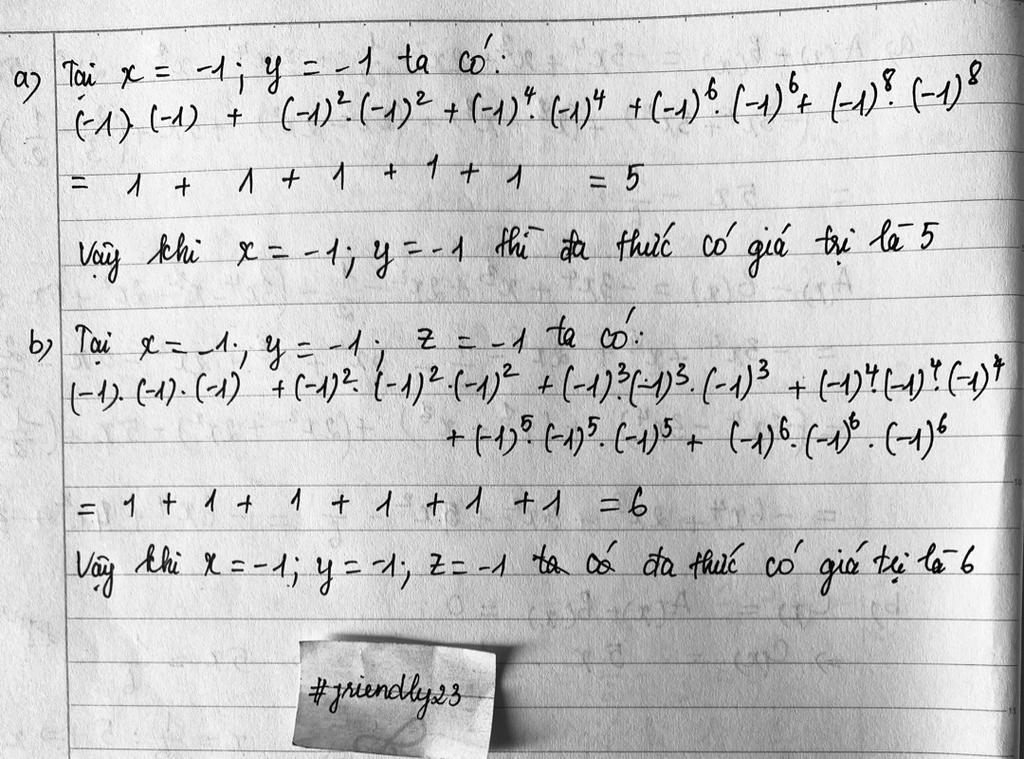 a) Tại x = -1; y = -1 ta có:
(-1).(-1) + (-1)².(-1)² + (-1)⁴.(-1)⁴ + (-1)⁶.(-1)⁶ + (-1)⁸.(-1)⁸
= 1 + 1 + 1 + 1 + 1 = 5
Vậy khi x = -1; y = -1 thì đa thức có giá trị là 5
b) Tại x = -1; y = -1; z = -1 ta có:
(-1).(-1).(-1) + (-1)².(-1)².(-1)² + (-1)³.(-1)³.(-1)³ + (-1)⁴.(-1)⁴.(-1)⁴
+ (-1)⁵.(-1)⁵.(-1)⁵ + (-1)⁶.(-1)⁶.(-1)⁶
= 1 + 1 + 1 + 1 + 1 + 1 = 6
Vậy khi x = -1; y = -1; z = -1 ta có đa thức có giá trị là 6
#friendly23